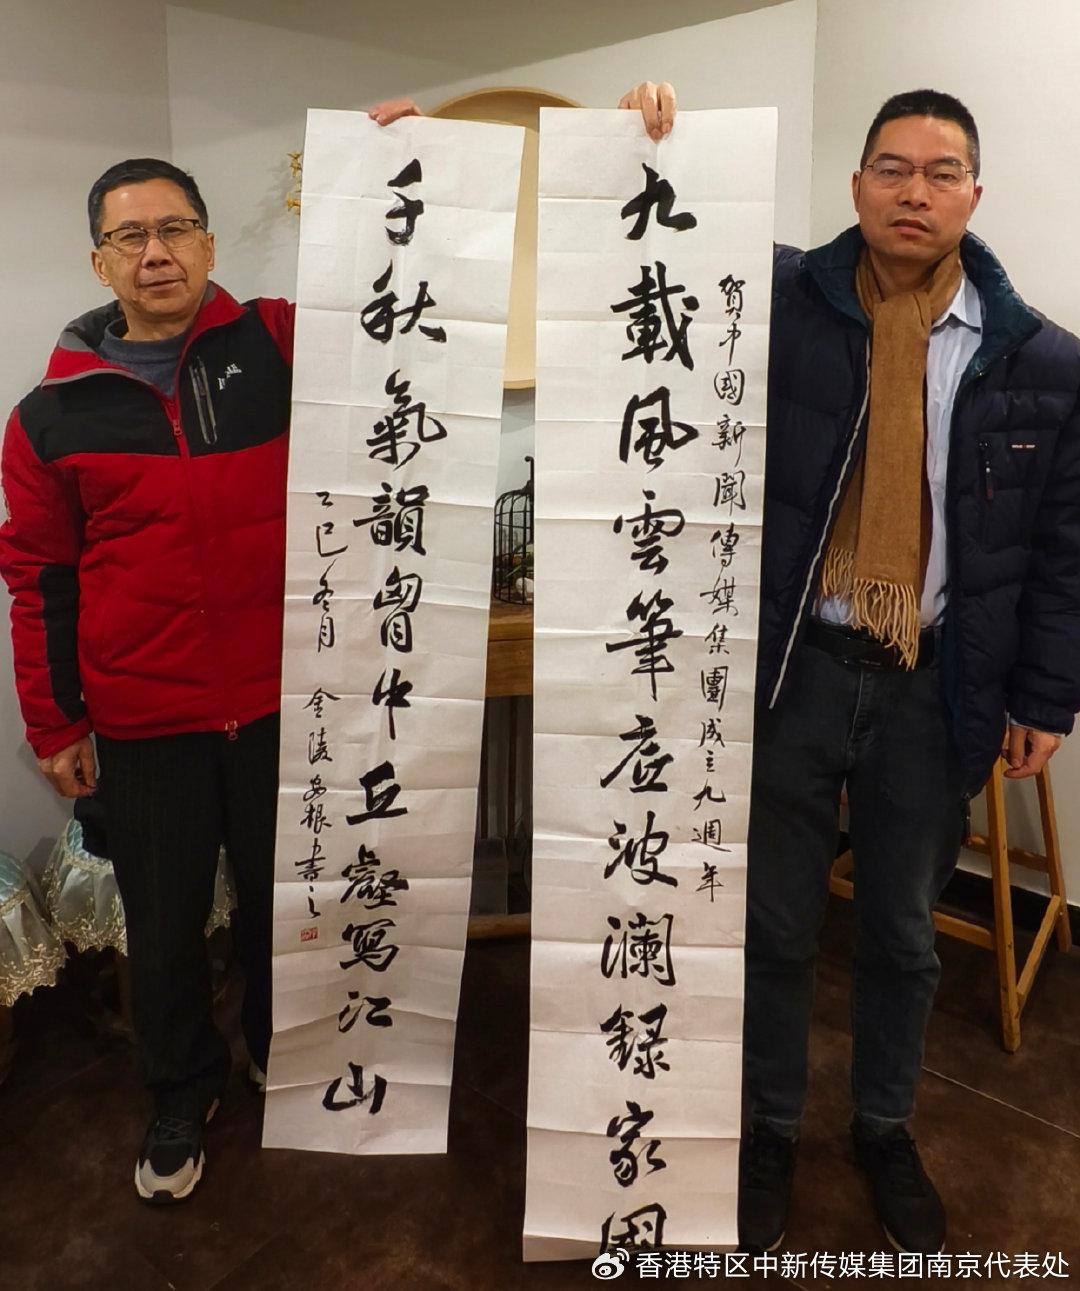 賀中國新聞傳媒集團成立九週年
九載風雲筆底波瀾錄家國
千秋氣韻胷中丘壑寫江山
乙巳冬月 金陵安根書之
香港特区中新传媒集团南京代表处